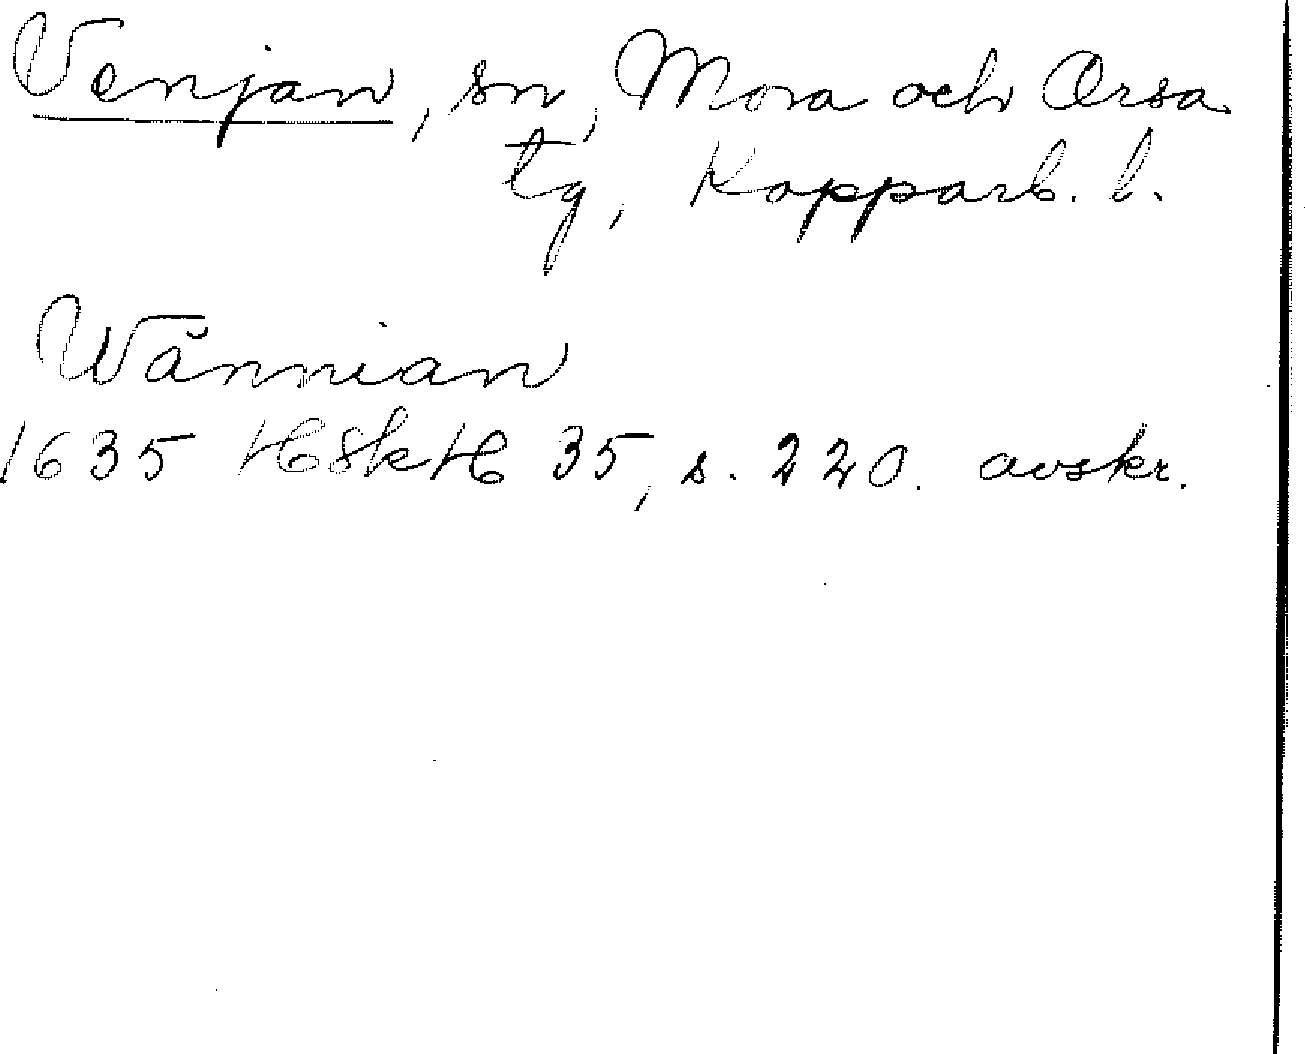 Venjan, sn, Mora och Orsa
tg, Kopparb. l.
Wännian
1635 HSkH 35, s. 220. avskr.